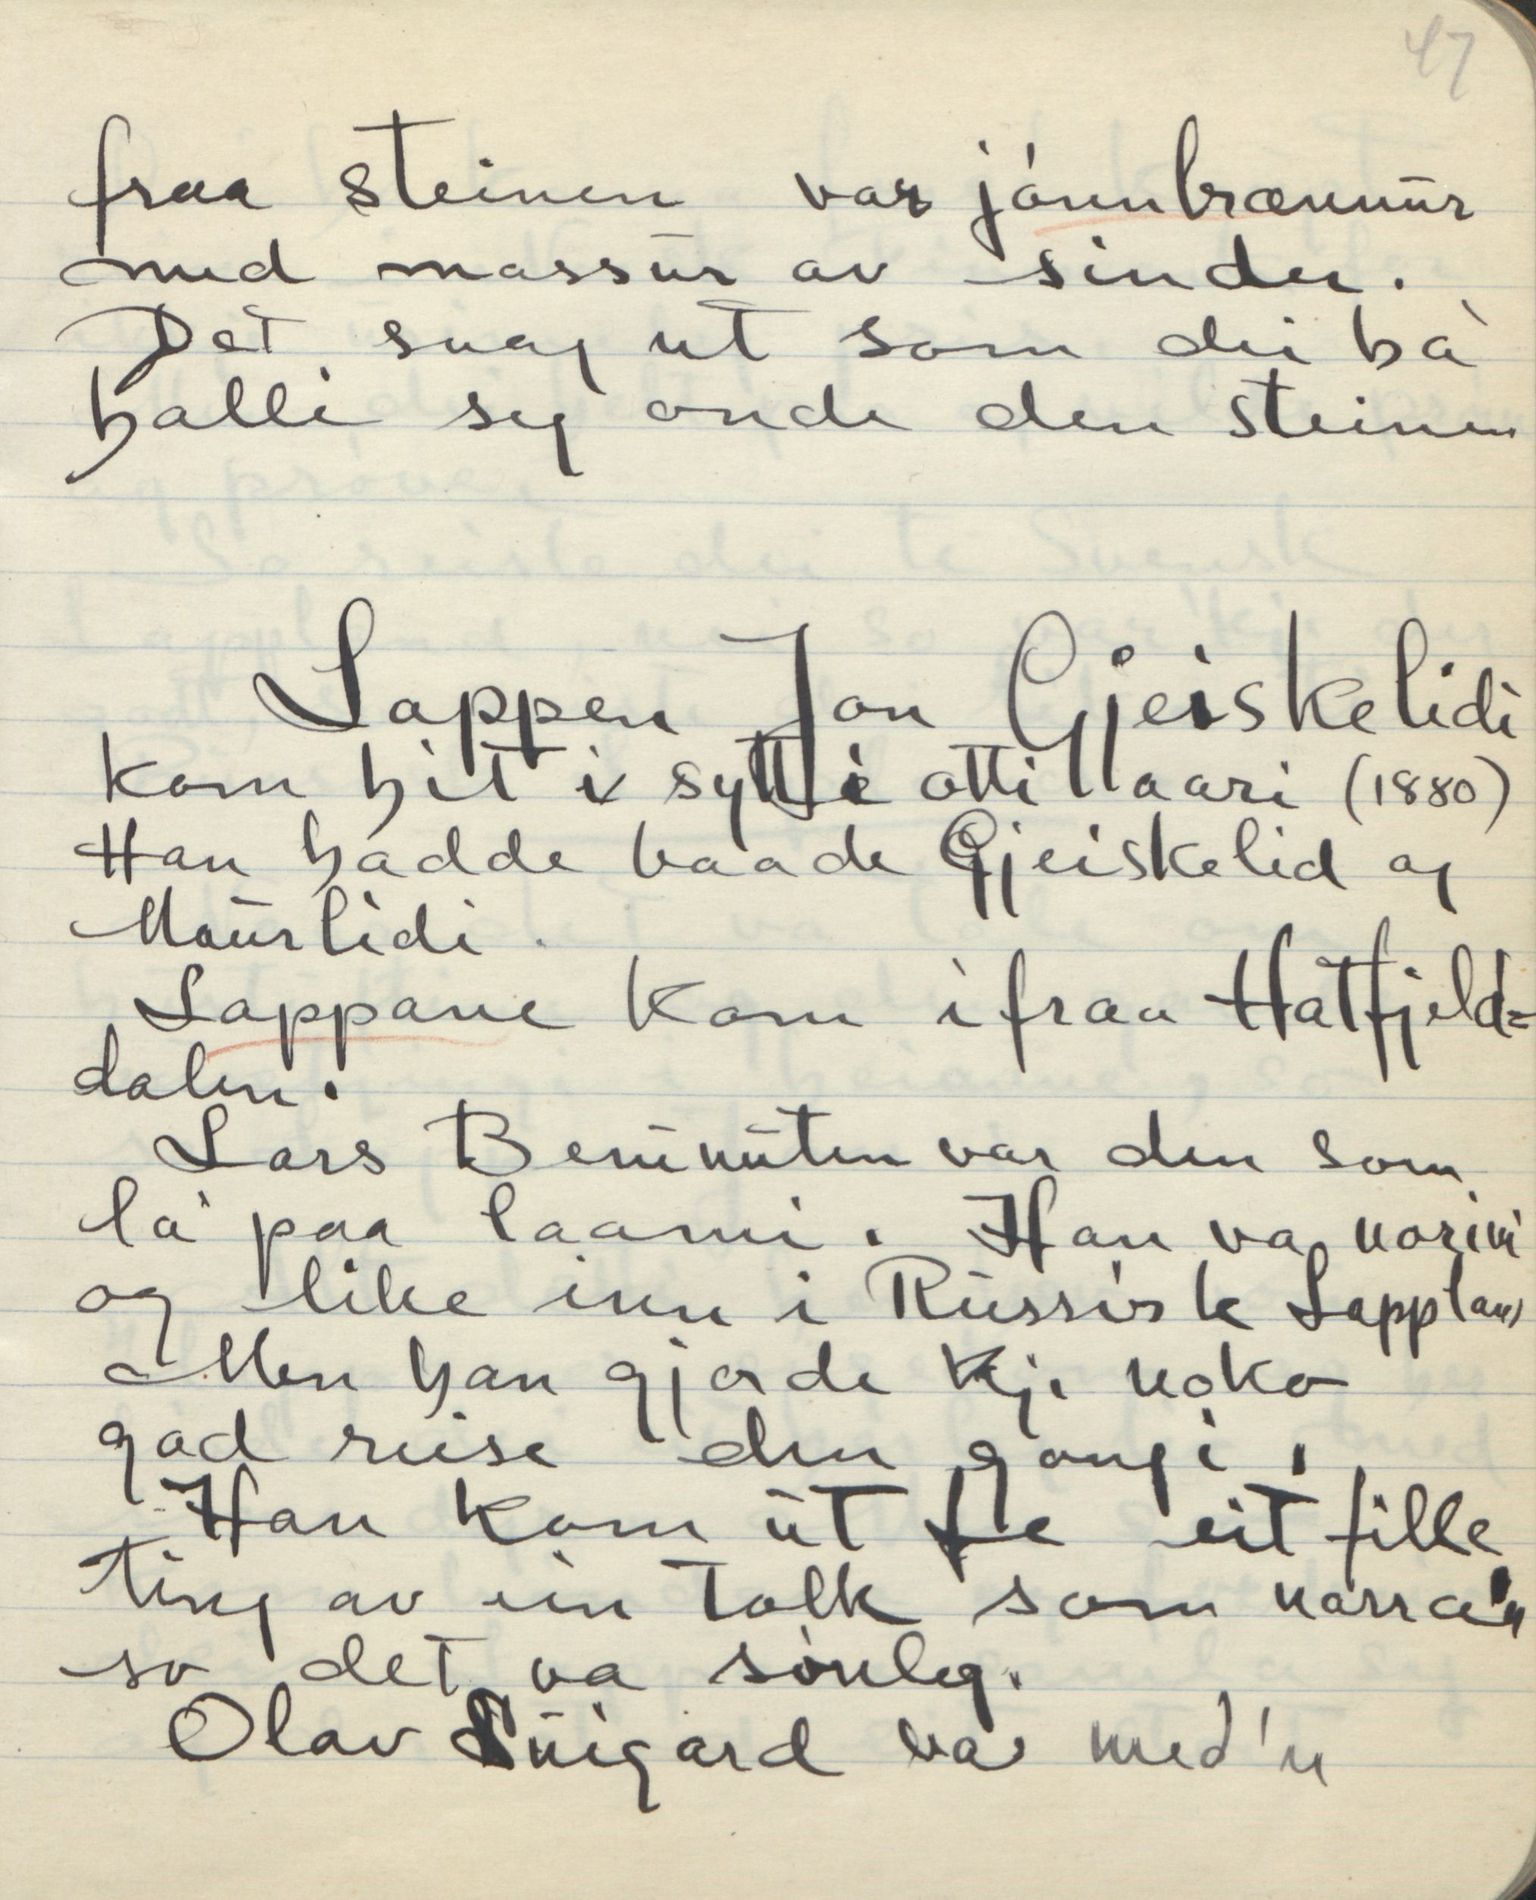 47
fraa steinen var jónnbrænnur
med massur av sinder.
Det snag ut som dei há
halli seg onde den steinen
Lappen Jon Gjeiskelidi
kom hit i sytti otti aari (1880)
Han hadde baade Gjeiskelid og
Maurlidi.
Lappane kom ifraa Hatfjeld=
dalen.
Lars Berunuten var den som
la' paa laami. Han va norini
og like inn i Russisk Lapplan
Men han gjorde kje noko
god reise den gongi,
Han kom ut fe eit fille
ting av ein Tolk som narra'n
so det va sónleg.
Olav Suigard va med'n